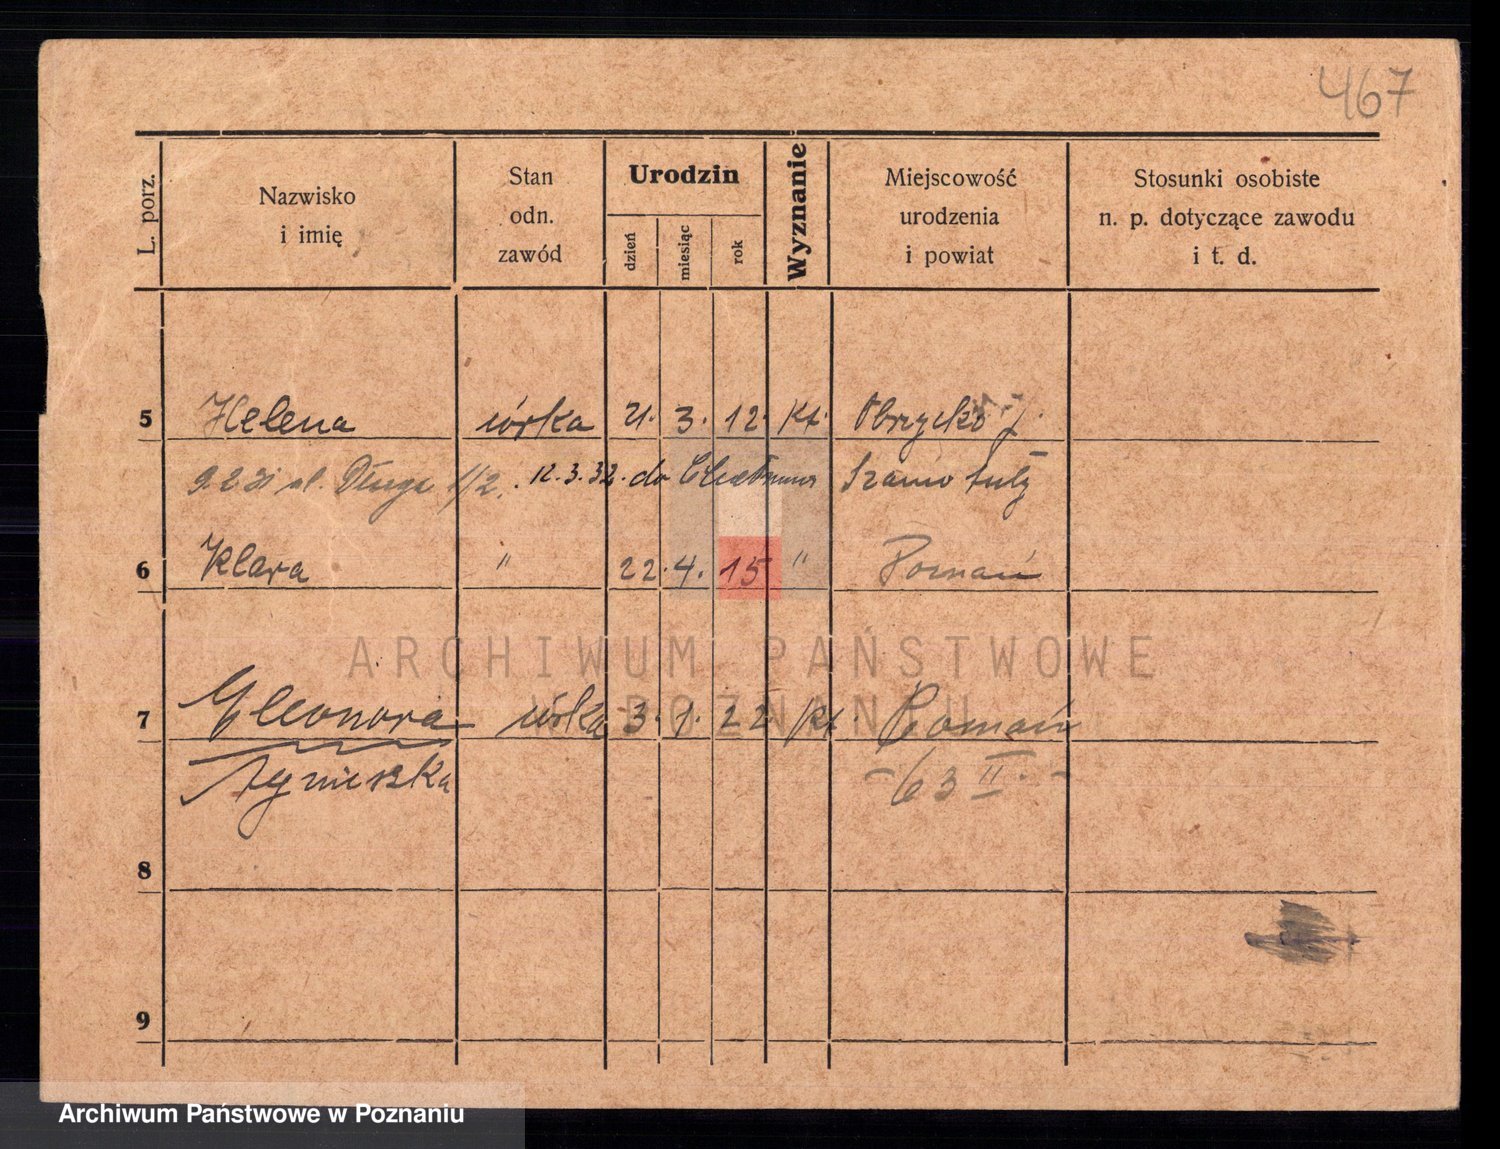 467
L. porz.
Nazwisko i imię
Stan odn. zawód
Urodzin
dzień
miesiąc
rok
Wyznanie
Miejscowość urodzenia i powiat
Stosunki osobiste n. p. dotyczące zawodu i t. d.
5 Helena córka 21. 3. 12. kt. Obrzycko
ul. Długa 1/2. 12.3.32. do Szamotuły
6 Klara " 22. 4. 15 " Poznań
ARCHIWUM PAŃSTWOWE
W POZNANIU
7 Eleonora córka 3. 1. 22 kt. Poznań
Agnieszka - 63 II. -
8
9
Archiwum Państwowe w Poznaniu